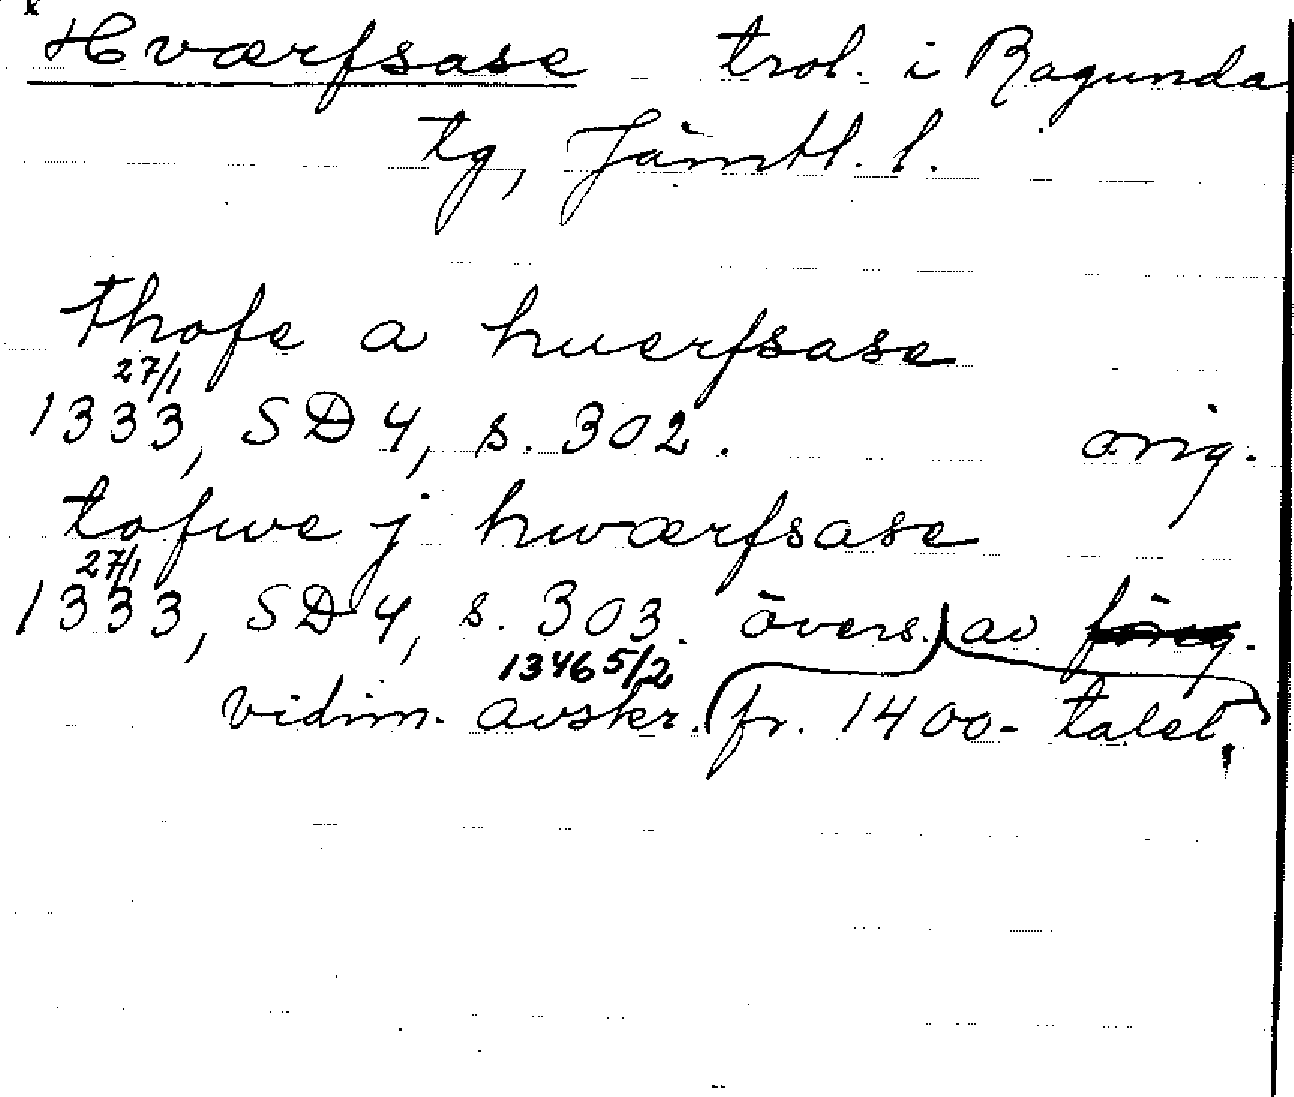 x
Hværfsase trol. i Ragunda
tg, Jämtl. l.
thofe a huerfsase
27/1
1333, SD 4, s. 302. orig.
tofwe j hwærfsase
27/1
1333, SD 4, s. 303. övers. av föreg.
1346 5/2
vidim. avskr. fr. 1400-talet.